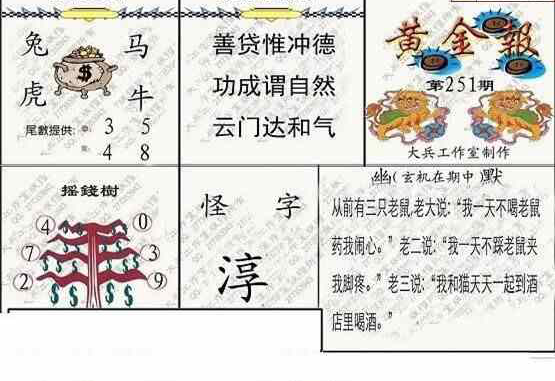 兔 马
虎 牛
尾數提供: 3 5
4 8
善贷惟冲德
功成谓自然
云门达和气
黄金報
第251期
大兵工作室制作
摇錢樹
4 0
7 3
2 9
怪 字
淳
幽(玄机在期中 默
从前有三只老鼠,老大说:“我一天不喝老鼠
药我闹心。”老二说:“我一天不踩老鼠夹
我脚疼。”老三说:“我和猫天天一起到酒
店里喝酒。”